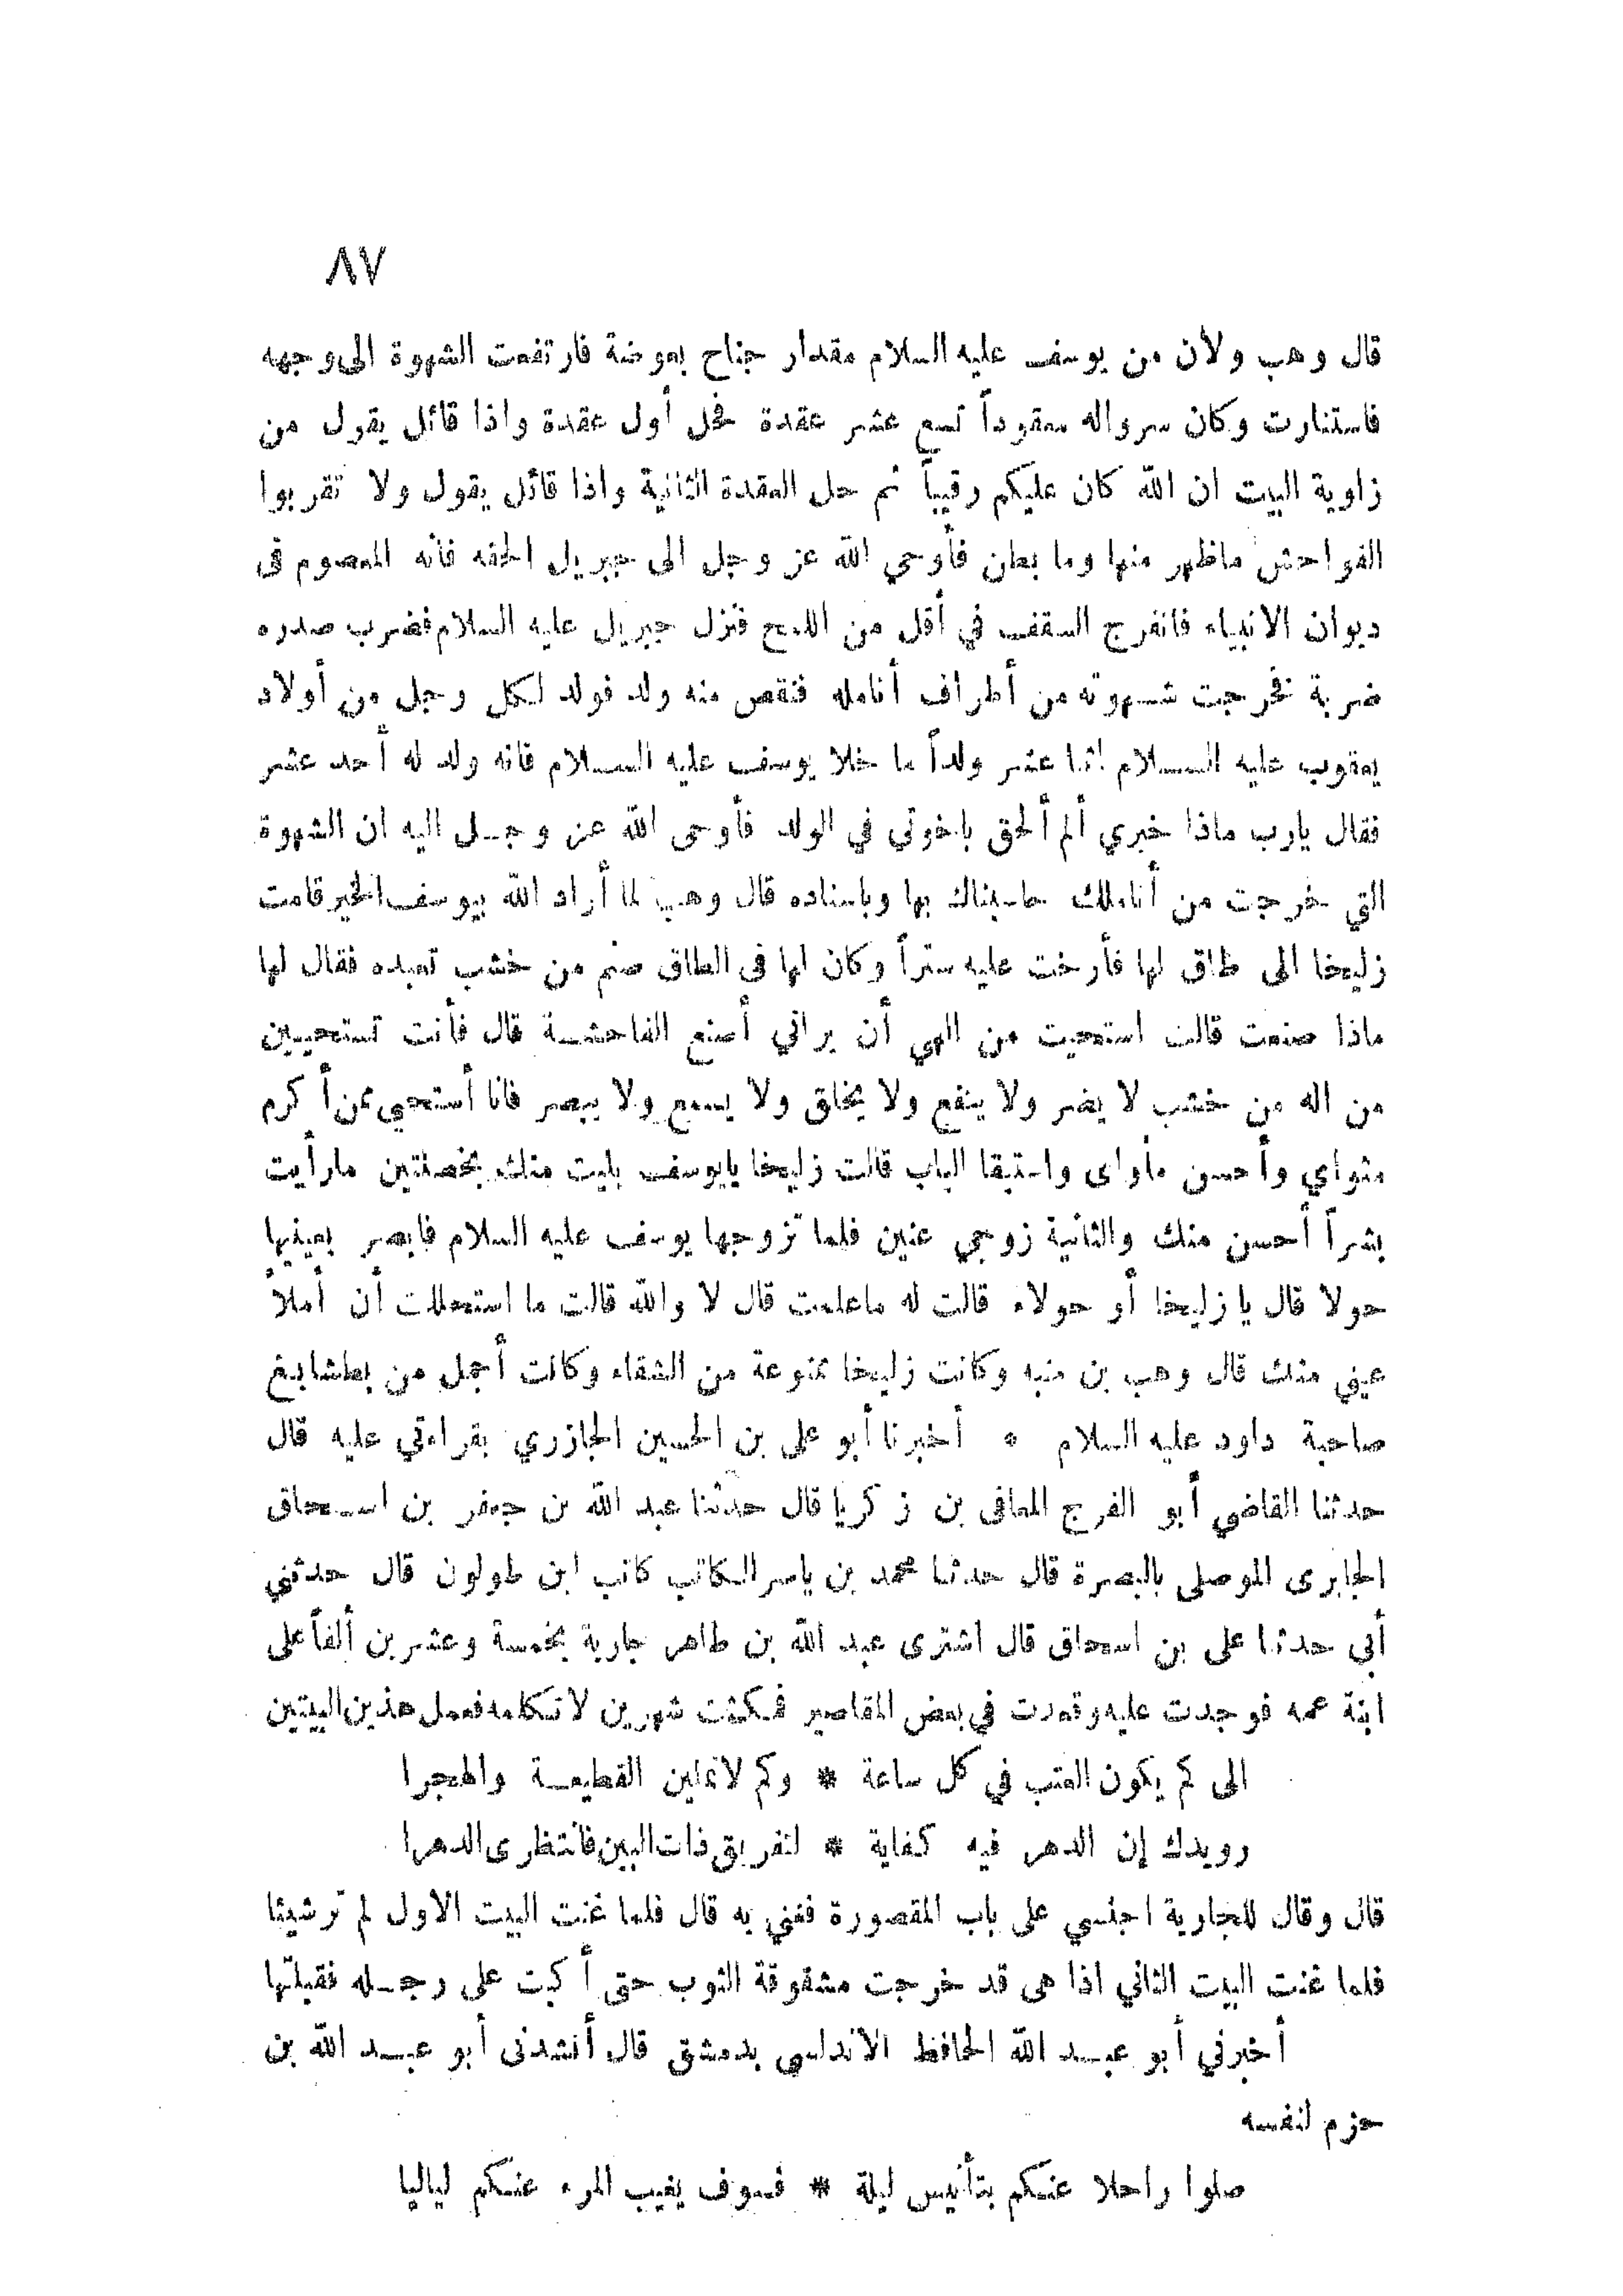 ٨٧
قال وهب ولان من يوسف عليه السلام مقدار جناح بعوضة فارتفعت الشهوة الى وجهه
فاستنارت وكان سرواله معقوداً تسع عشر عقدة فحل أول عقدة واذا قائل يقول من
زاوية البيت ان الله كان عليكم رقيباً ثم حل العقدة الثانية واذا قائل يقول ولا تقربوا
الفواحش ماظهر منها وما بطن فأوحي الله عز وجل الى جبريل الحقه فانه المعصوم فى
ديوان الانبياء فانفرج السقف في أقل من اللمح فنزل جبريل عليه السلام فضرب صدره
ضربة فخرجت شهوته من أطراف أنامله فنقص منه ولد فولد لكل رجل من أولاد
يعقوب عليه السلام اثنا عشر ولداً ما خلا يوسف عليه السلام فانه ولد له أحد عشر
فقال يارب ماذا خبري ألم ألحق باخوتي في الولد فأوحى الله عز وجل اليه ان الشهوة
التي خرجت من أناملك حاسبناك بها وباسناده قال وهب لما أراد الله بيوسف الخير قامت
زليخا الى طاق لها فأرخت عليه ستراً وكان لها فى الطاق صنم من خشب تعبده فقال لها
ماذا صنعت قالت استحيت من الهي أن يراني أصنع الفاحشة قال فأنت تستحيين
من اله من خشب لا يضر ولا ينفع ولا يخلق ولا يسمع ولا يبصر فانا أستحي ممن أكرم
مثواي وأحسن مأواى واستبقا الباب قالت زليخا يايوسف بليت منك بخصلتين مارأيت
بشراً أحسن منك والثانية زوجي عنين فلما تزوجها يوسف عليه السلام فابصر بعينيها
حولا قال يا زليخا أو حولاء قالت له ماعلمت قال لا والله قالت ما استحللت أن أملأ
عيني منك قال وهب بن منبه وكانت زليخا ممنوعة من الشقاء وكانت أجمل من بطشابيغ
صاحبة داود عليه السلام ٥ أخبرنا أبو على بن الحسين الجازري بقراءتي عليه قال
حدثنا القاضي أبو الفرج المعافى بن زكريا قال حدثنا عبد الله بن جعفر بن اسحاق
الجابرى الموصلى بالبصرة قال حدثنا محمد بن ياسر الكاتب كاتب ابن طولون قال حدثني
أبى حدثنا على بن اسحاق قال اشترى عبد الله بن طاهر جارية بخمسة وعشرين ألفاً على
ابنة عمه فوجدت عليه وقعدت في بعض المقاصير فمكثت شهرين لا تكلمه فعمل هذين البيتين
الى كم يكون العتب في كل ساعة * وكم لا تملين القطيعة والهجرا
رويدك إن الدهر فيه كفاية * لتفريق ذات البين فانتظرى الدهرا
قال وقال للجارية اجلسي على باب المقصورة فغني به قال فلما غنت البيت الاول لم تر شيئا
فلما غنت البيت الثاني اذا هى قد خرجت مشقوقة الثوب حتى أكبت على رجله فقبلتها
أخبرني أبو عبد الله الحافظ الاندلسي بدمشق قال أنشدنى أبو عبد الله بن
حزم لنفسه
صلوا راحلا عنكم بتأنيس ليلة * فسوف يغيب المرء عنكم لياليا